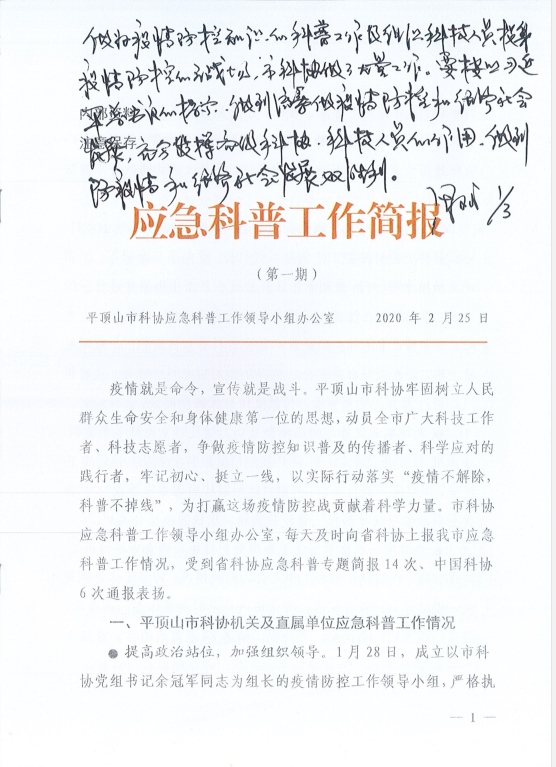 做好疫情防控知识的科普工作及组织科技人员投身
疫情防控的主战场，市科协做了大量工作。要按照习近
平总书记的指示，做到统筹做疫情防控和经济社会
发展，充分发挥市级科协、科技人员的作用，做到
防疫情和经济社会发展双胜利。
1/3
内部资料
注意保存
应急科普工作简报
（第一期）
平顶山市科协应急科普工作领导小组办公室 2020 年 2 月 25 日
疫情就是命令，宣传就是战斗。平顶山市科协牢固树立人民
群众生命安全和身体健康第一位的思想，动员全市广大科技工作
者、科技志愿者，争做疫情防控知识普及的传播者、科学应对的
践行者，牢记初心、挺立一线，以实际行动落实“疫情不解除，
科普不掉线”，为打赢这场疫情防控战贡献着科学力量。市科协
应急科普工作领导小组办公室，每天及时向省科协上报我市应急
科普工作情况，受到省科协应急科普专题简报 14 次、中国科协
6 次通报表扬。
一、平顶山市科协机关及直属单位应急科普工作情况
● 提高政治站位，加强组织领导。1 月 28 日，成立以市科
协党组书记余冠军同志为组长的疫情防控工作领导小组，严格执
— 1 —